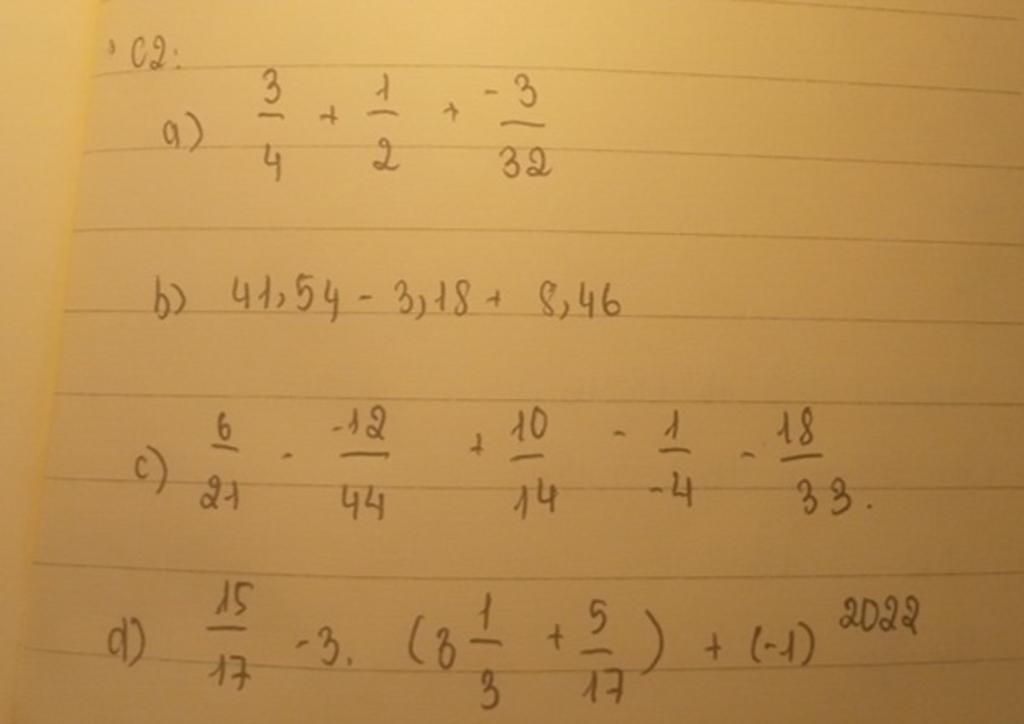 C2:
a) 3/4 + 1/2 + -3/32
b) 41,54 - 3,18 + 8,46
c) 6/21 - -12/44 + 10/14 - 1/-4 - 18/33.
d) 15/17 - 3. (3 1/3 + 5/17) + (-1)^2022